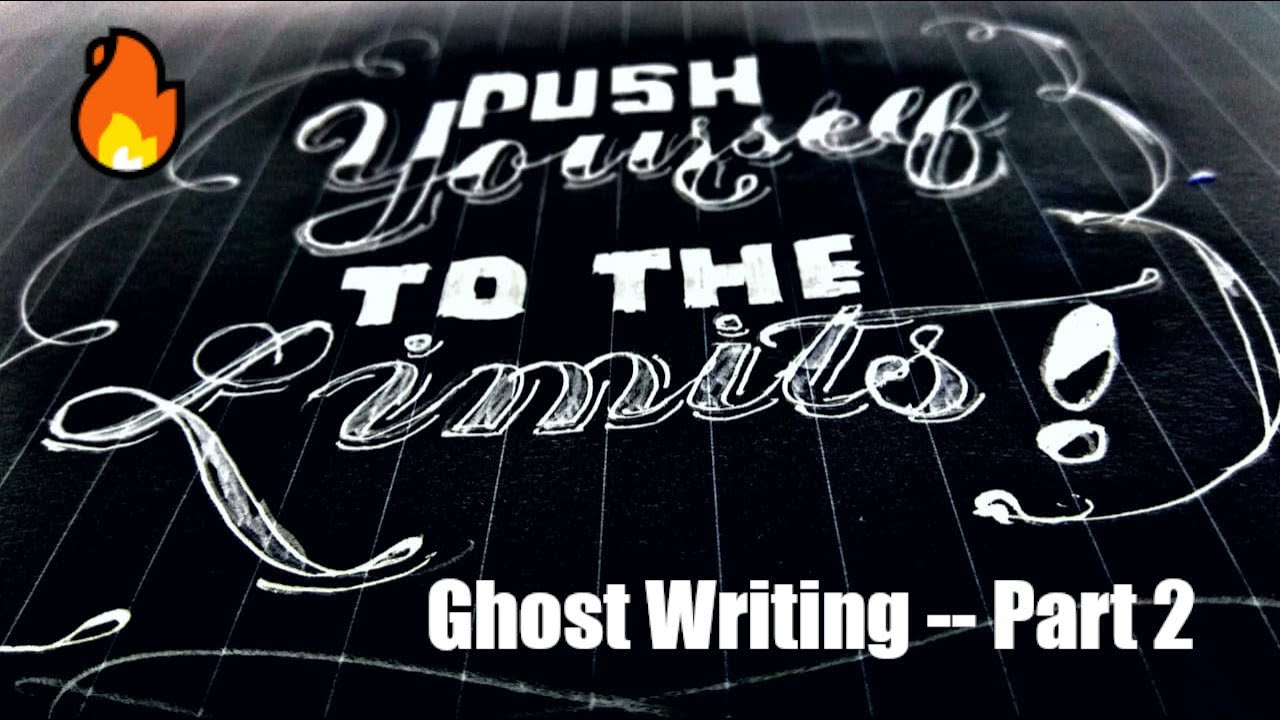 PUSH
Yourself
TO THE
Limits!
Ghost Writing -- Part 2